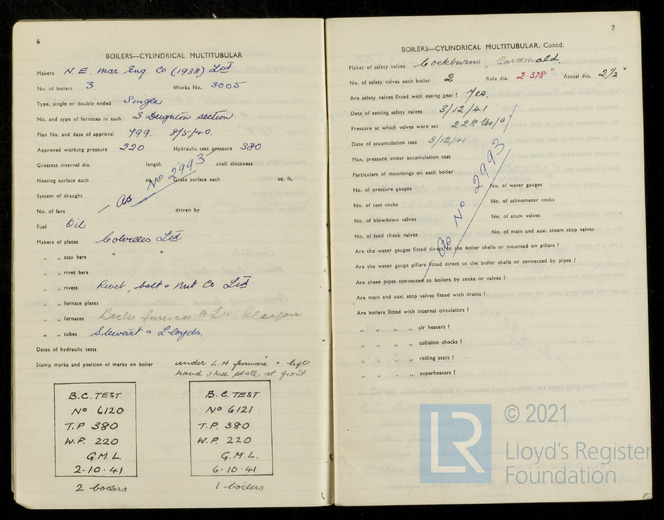 6
BOILERS—CYLINDRICAL MULTITUBULAR
Makers N.E. Mar. Eng. Co (1938) Ltd
No. of boilers 3. Works No. 3005
Type, single or double ended Single
No. and type of furnaces in each 3 Deighton section
Plan No. and date of approval 799. 8/5/40.
Approved working pressure 220 Hydraulic test pressure 380
Greatest internal dia. length shell thickness
Heating surface each sq. Grate surface each sq. ft.
System of draught as No 2993
No. of fans driven by
Fuel Oil
Makers of plates Colvilles Ltd
„ „ stay bars " "
„ „ rivet bars
„ „ rivets Rivet, bolt & Nut Co Ltd
„ „ furnace plates
„ „ furnaces
„ „ tubes Stewart & Lloyds.
Dates of hydraulic tests
Stamp marks and position of marks on boiler under L.H furnace & left
hand shell plate at front
B.C. TEST
No 6120
T.P 380
W.P. 220
G.M.L.
2-10-41
2 boilers
B.C. TEST
No 6121
T.P. 380
W.P. 220
G.M.L.
6-10-41
1 boilers
7
BOILERS—CYLINDRICAL MULTITUBULAR, Contd.
Maker of safety valves Cockburns, Cardonald.
No. of safety valves each boiler 2 Rule dia. 2.378" Actual dia. 2½"
Are safety valves fitted with easing gear? Yes.
Date of setting safety valves 3/12/41
Pressure at which valves were set 228 lbs/□"
Date of accumulation test 3/12/41
Max. pressure under accumulation test
Particulars of mountings on each boiler
as No 2993
No. of pressure gauges No. of water gauges
No. of test cocks No. of salinometer cocks
No. of blowdown valves No. of scum valves
No. of feed check valves No. of main and aux. steam stop valves
Are the water gauges fitted direct to the boiler shells or mounted on pillars?
Are the water gauge pillars fitted direct to the boiler shells or connected by pipes?
Are these pipes connected to boilers by cocks or valves?
Are main and aux. stop valves fitted with drains?
Are boilers fitted with internal circulators?
„ „ „ „ air heaters?
„ „ „ „ collision chocks?
„ „ „ „ rolling stays?
„ „ „ „ superheaters?
LR
© 2021
Lloyd's Register
Foundation